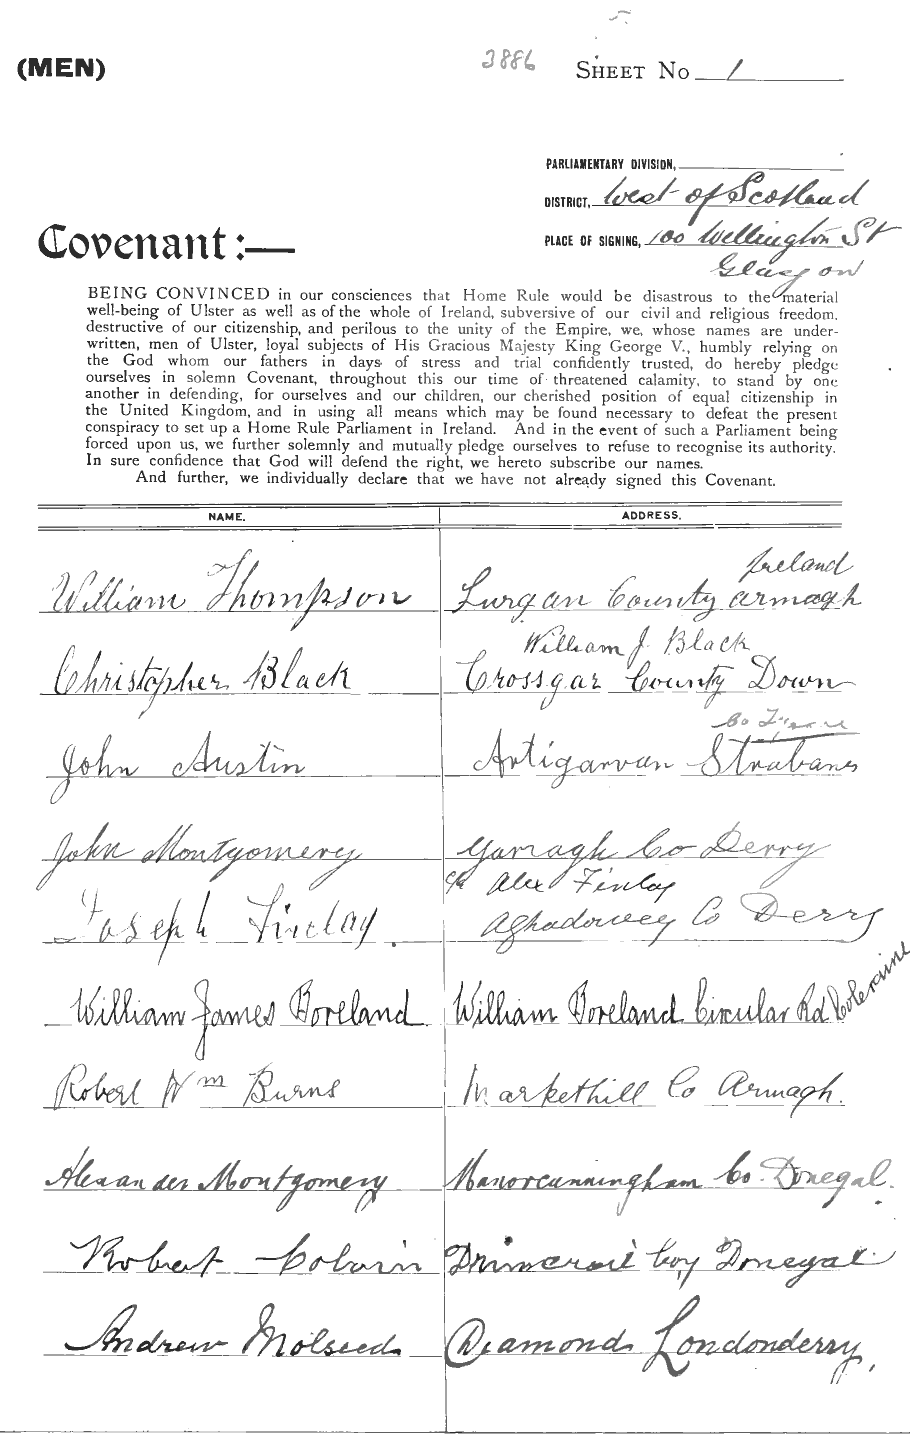 3886
(MEN) SHEET No 1
PARLIAMENTARY DIVISION,
DISTRICT, West of Scotland
PLACE OF SIGNING, 100 Wellington St
Glasgow
Covenant :—
BEING CONVINCED in our consciences that Home Rule would be disastrous to the material
well-being of Ulster as well as of the whole of Ireland, subversive of our civil and religious freedom,
destructive of our citizenship, and perilous to the unity of the Empire, we, whose names are under-
written, men of Ulster, loyal subjects of His Gracious Majesty King George V., humbly relying on
the God whom our fathers in days of stress and trial confidently trusted, do hereby pledge
ourselves in solemn Covenant, throughout this our time of threatened calamity, to stand by one
another in defending, for ourselves and our children, our cherished position of equal citizenship in
the United Kingdom, and in using all means which may be found necessary to defeat the present
conspiracy to set up a Home Rule Parliament in Ireland. And in the event of such a Parliament being
forced upon us, we further solemnly and mutually pledge ourselves to refuse to recognise its authority.
In sure confidence that God will defend the right, we hereto subscribe our names.
And further, we individually declare that we have not already signed this Covenant.
NAME. ADDRESS.
Ireland
William Thompson Lurgan County armagh
William J. Black
Christopher Black Crossgar County Down
Co Tyrone
John Austin Artigarvan Strabane
John Montgomery Garragh Co Derry
c/o Alex Finlay
Joseph Finlay Aghadowey Co Derry
William James Boreland William Boreland Circular Rd Coleraine
Robert Wm Burns Markethill Co Armagh.
Alexander Montgomery Manorcunningham Co. Donegal.
Robert Colvin Donegal
Andrew Molseed Diamond Londonderry,